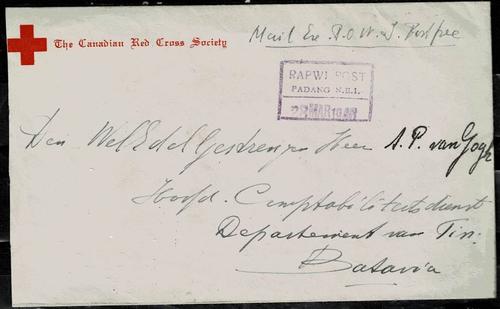 Mail Ex P.O.W. & I. Post free
The Canadian Red Cross Society
RAPWI POST
PADANG N.E.I.
MAR
Den WelEdelGestrengen Heer A. P. van Gogh
Hoofd. Comptabiliteitsdienst
Departement van Fin.
Batavia